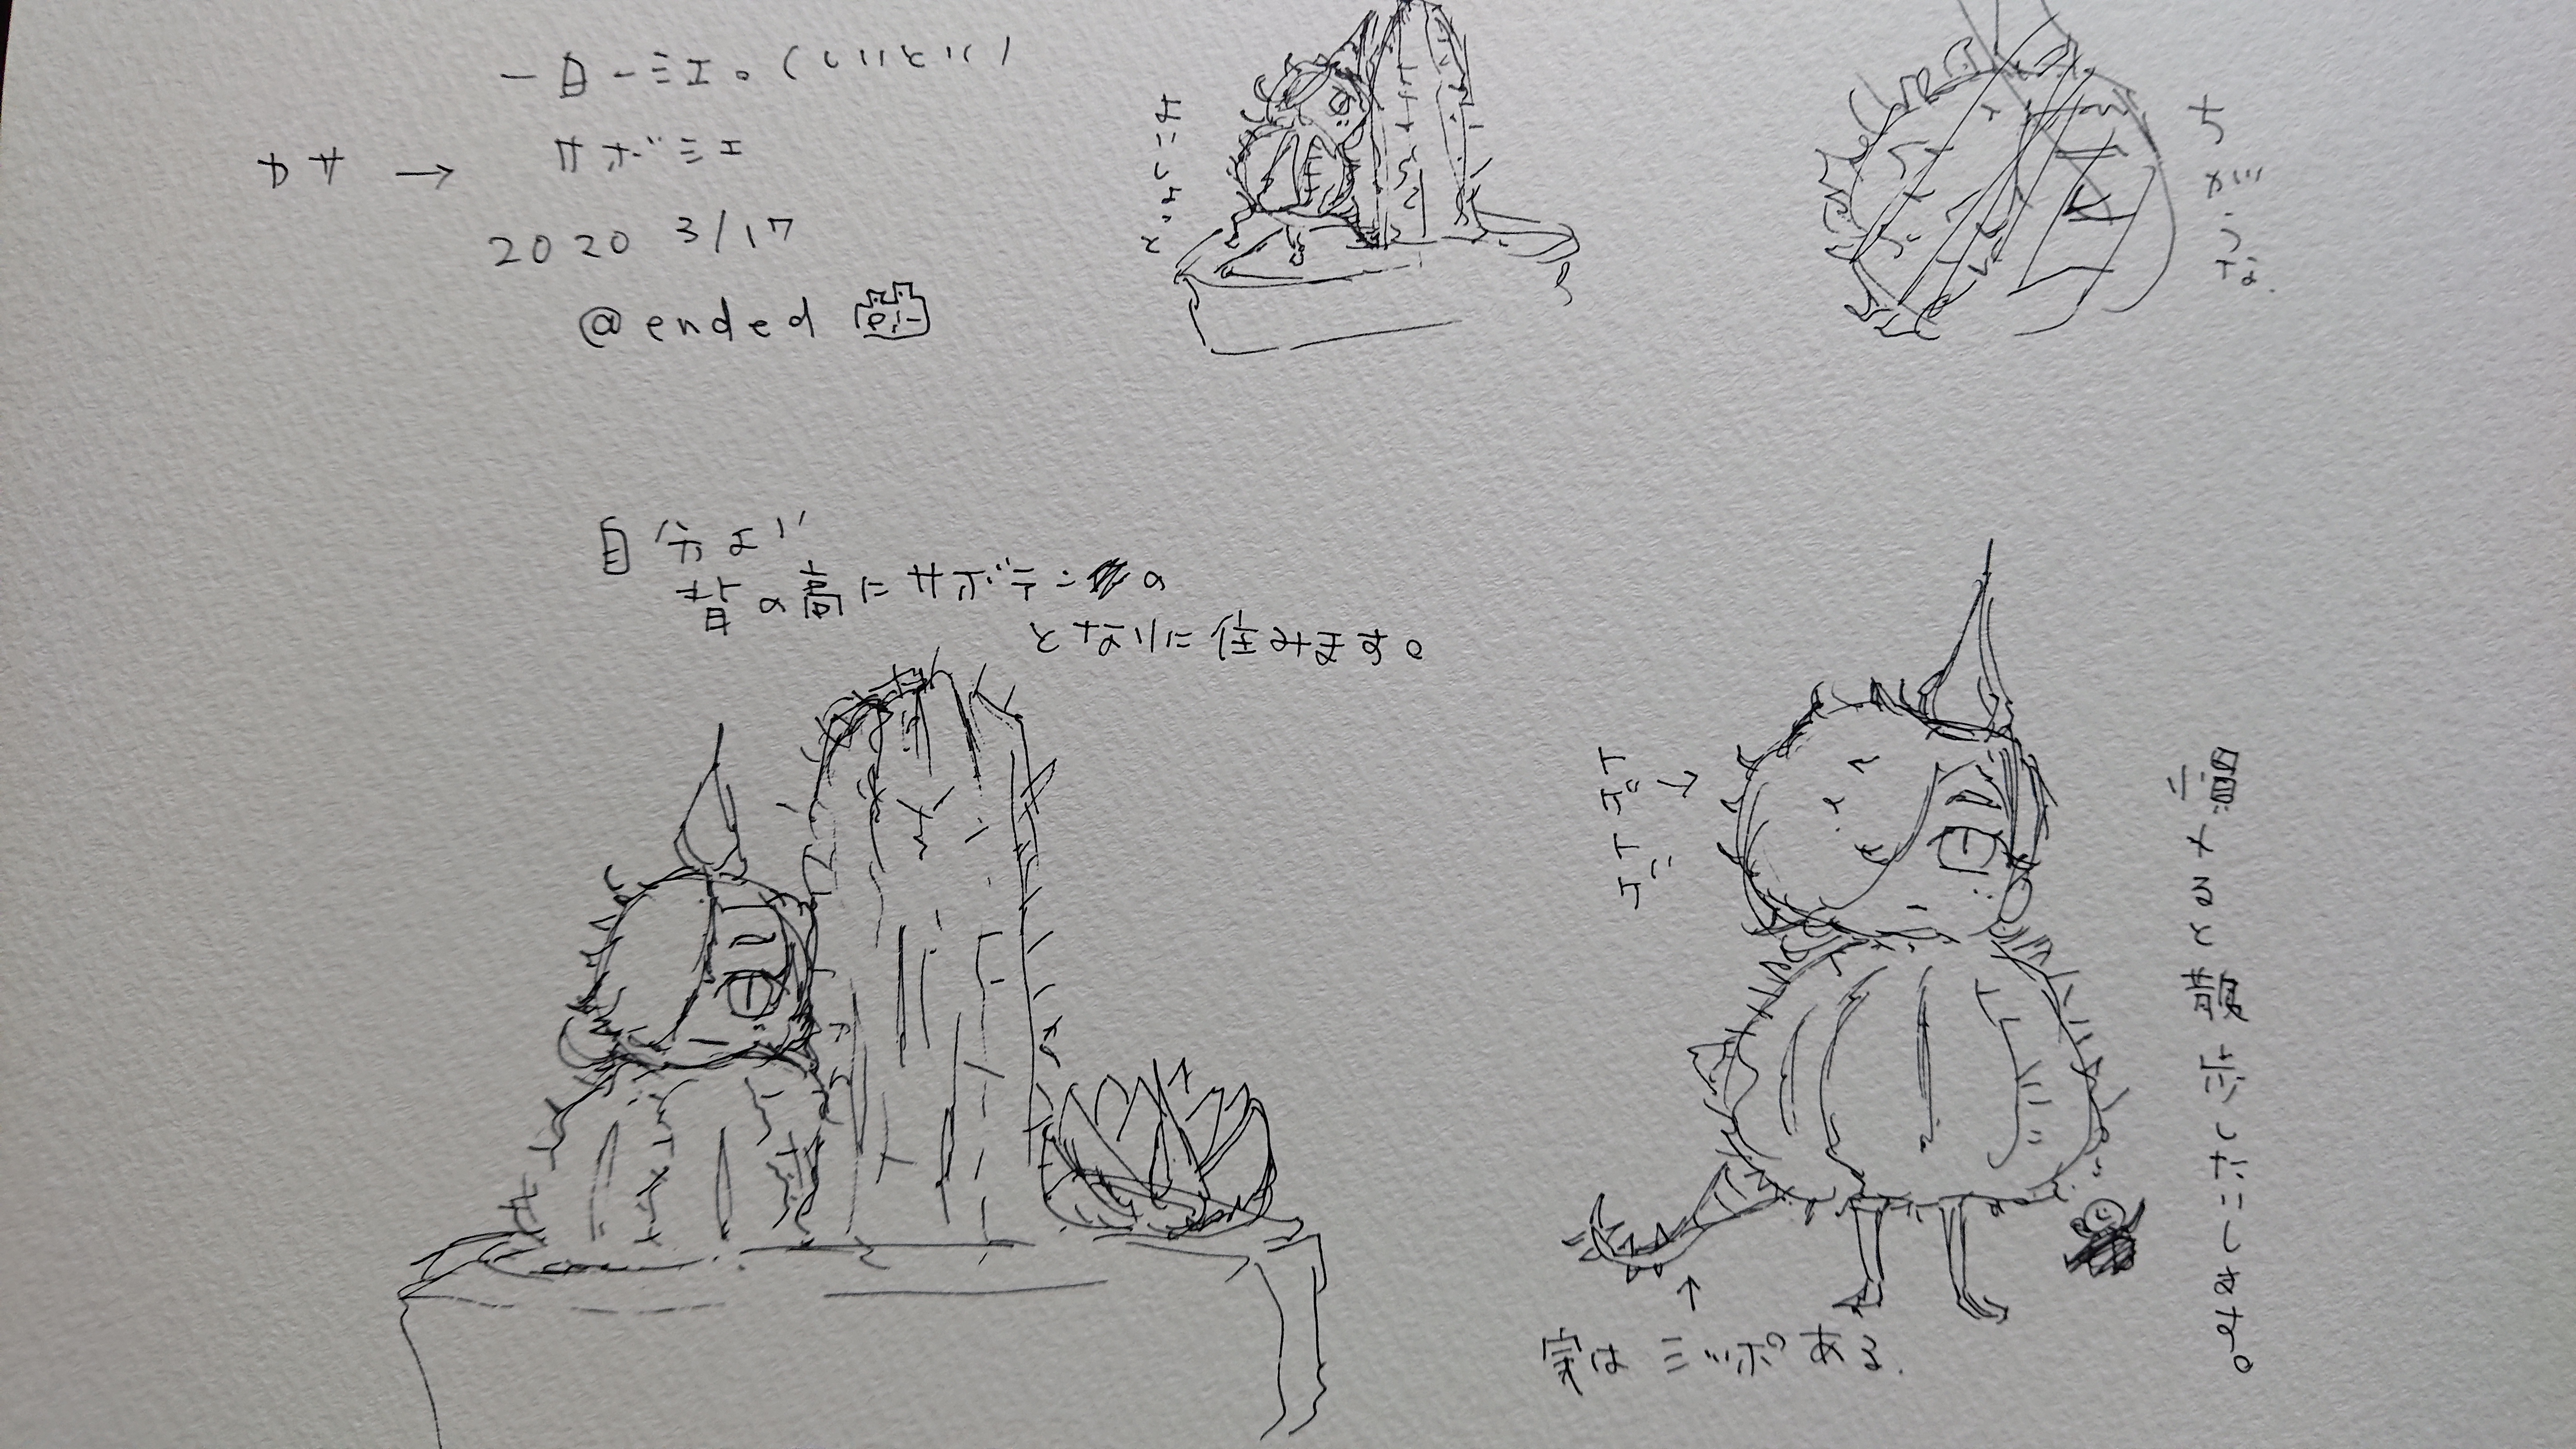 一日一ミエ。(いいとい)
カサ → サボミエ
2020 3/17
@ended
よこしょっと
ちがうな.
自分より
背の高いサボテンの
となりに住みます。
トゲトゲ→
慣れると散歩しだいします。
↑
実はシッポある.